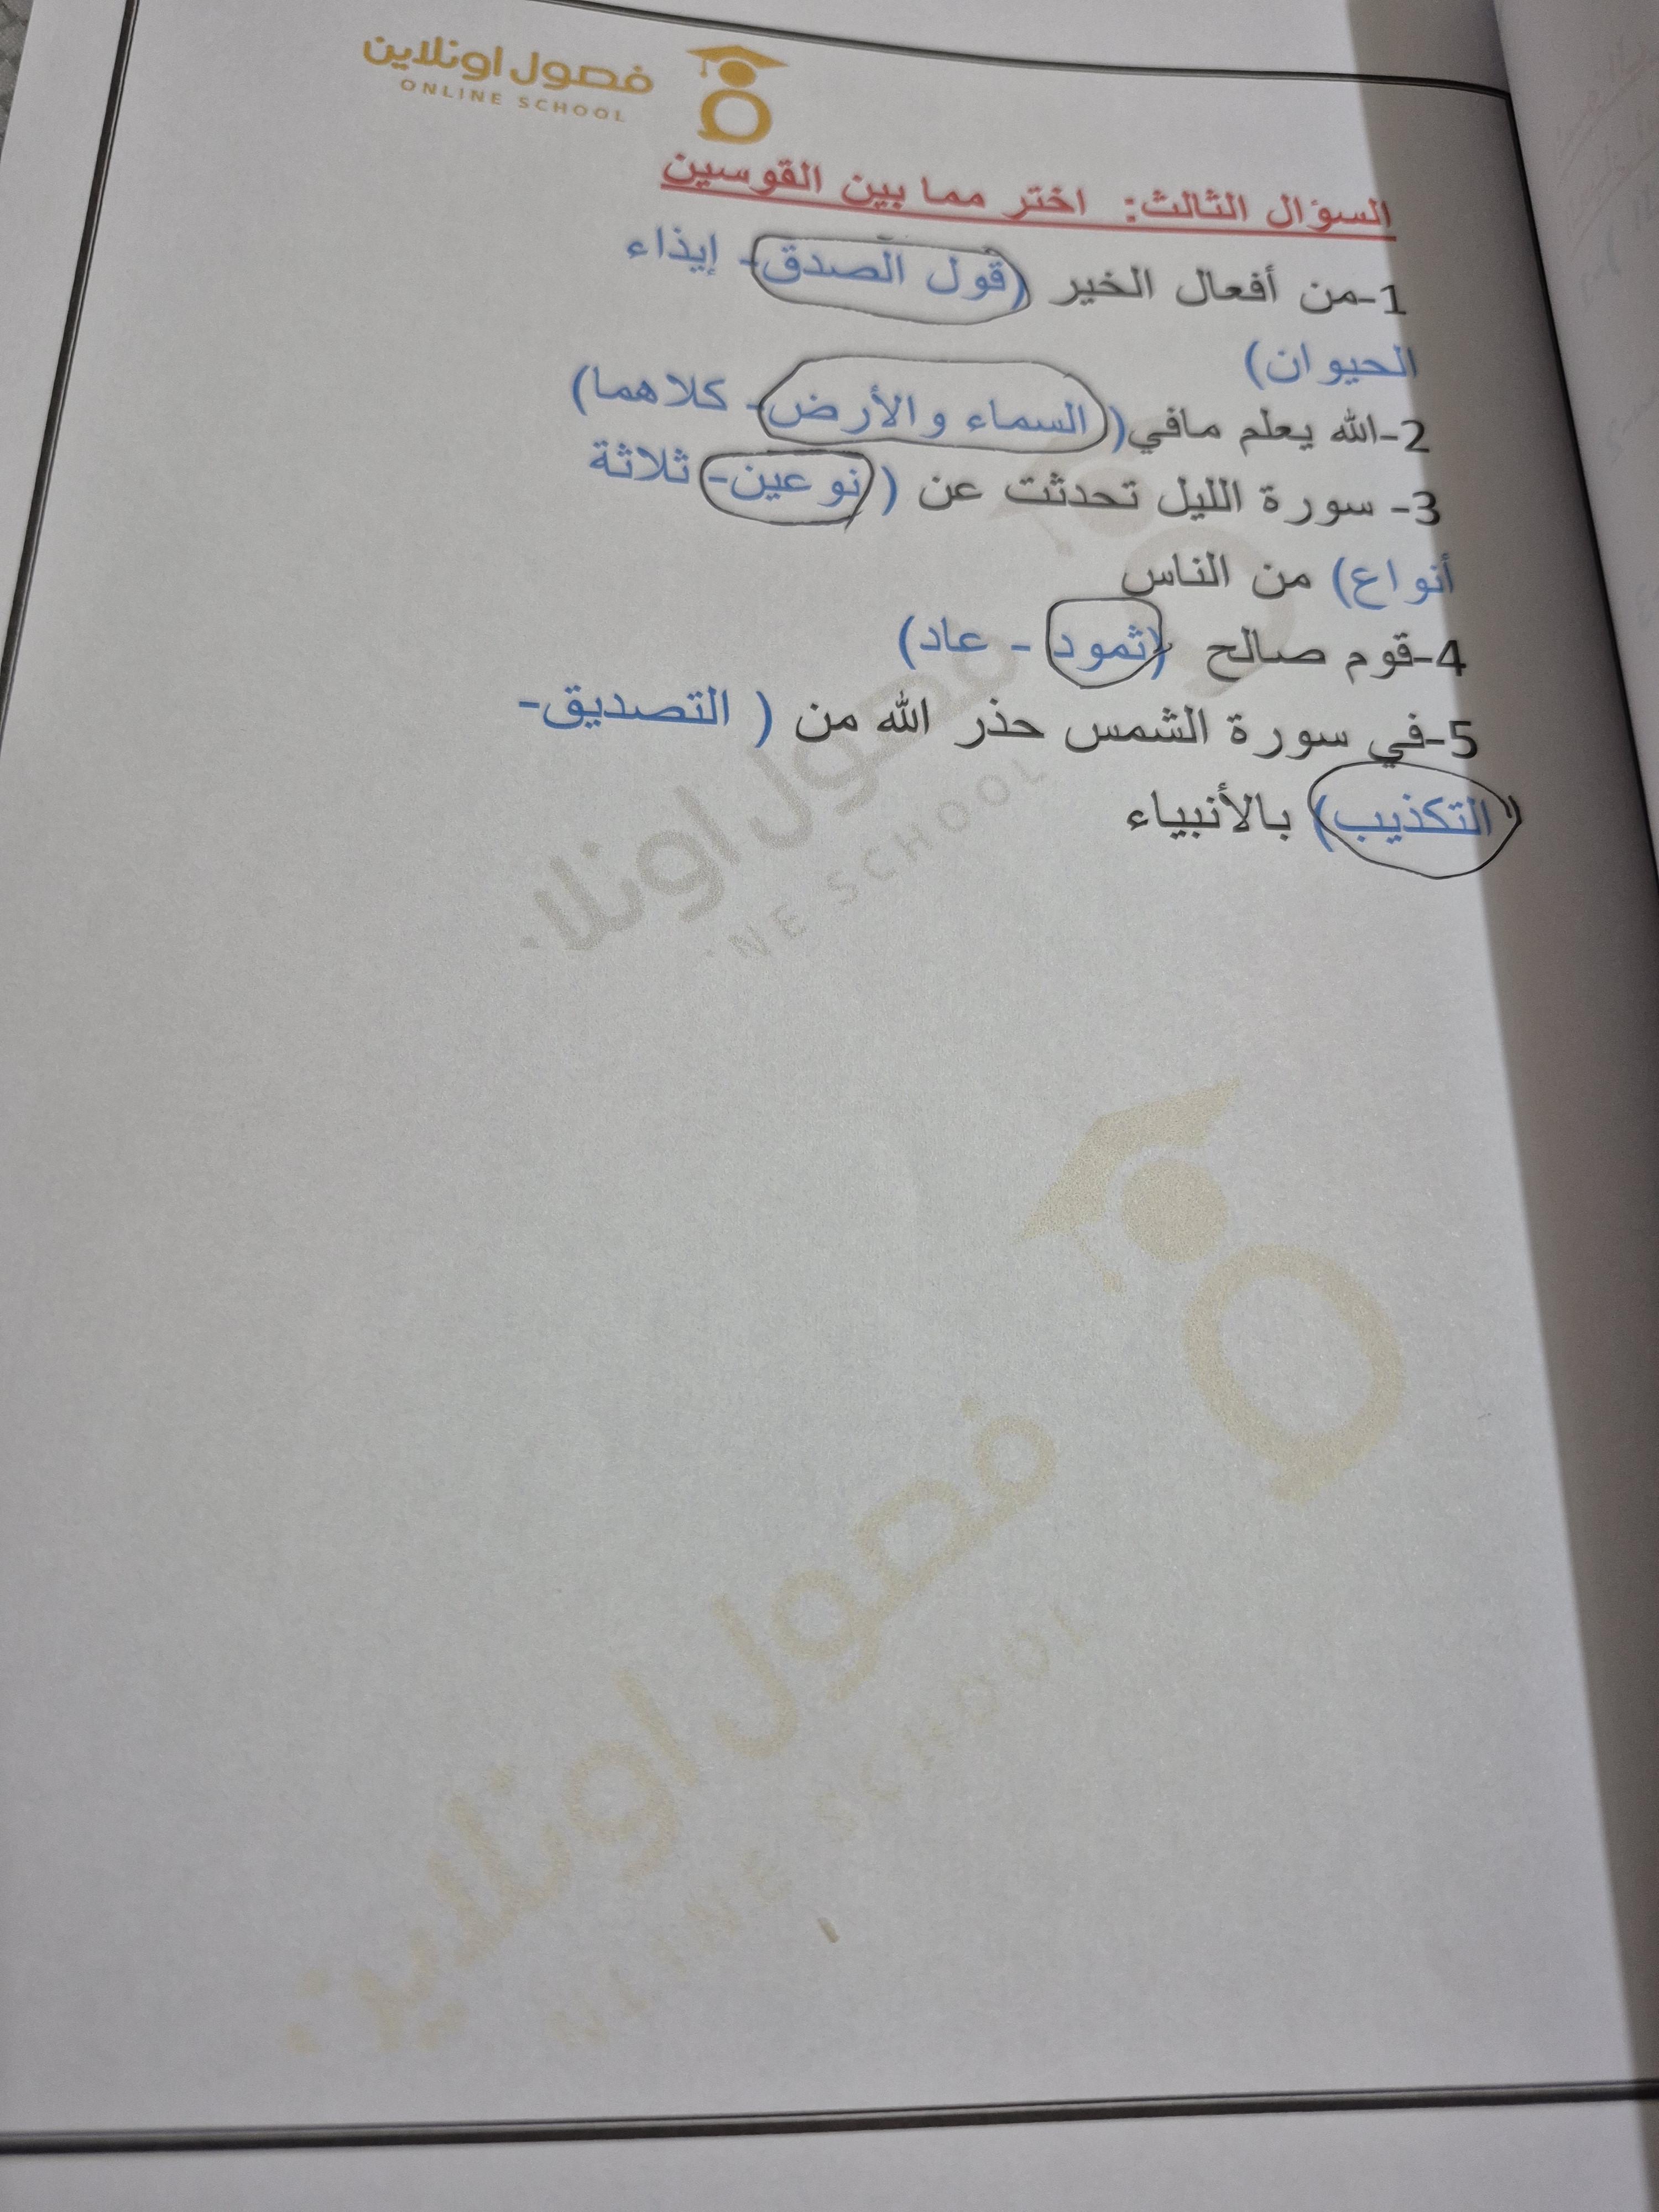 فصول اونلاين
ONLINE SCHOOL
السؤال الثالث: اختر مما بين القوسين
1-من أفعال الخير (قول الصدق- إيذاء
الحيوان)
2-الله يعلم مافي( السماء والأرض- كلاهما)
3- سورة الليل تحدثت عن ( نوعين- ثلاثة
أنواع) من الناس
4-قوم صالح (ثمود - عاد)
5-في سورة الشمس حذر الله من ( التصديق-
التكذيب) بالأنبياء
فصول اونلا
NE SCHOOL
فصول اونلاين
ONLINE SCHOOL